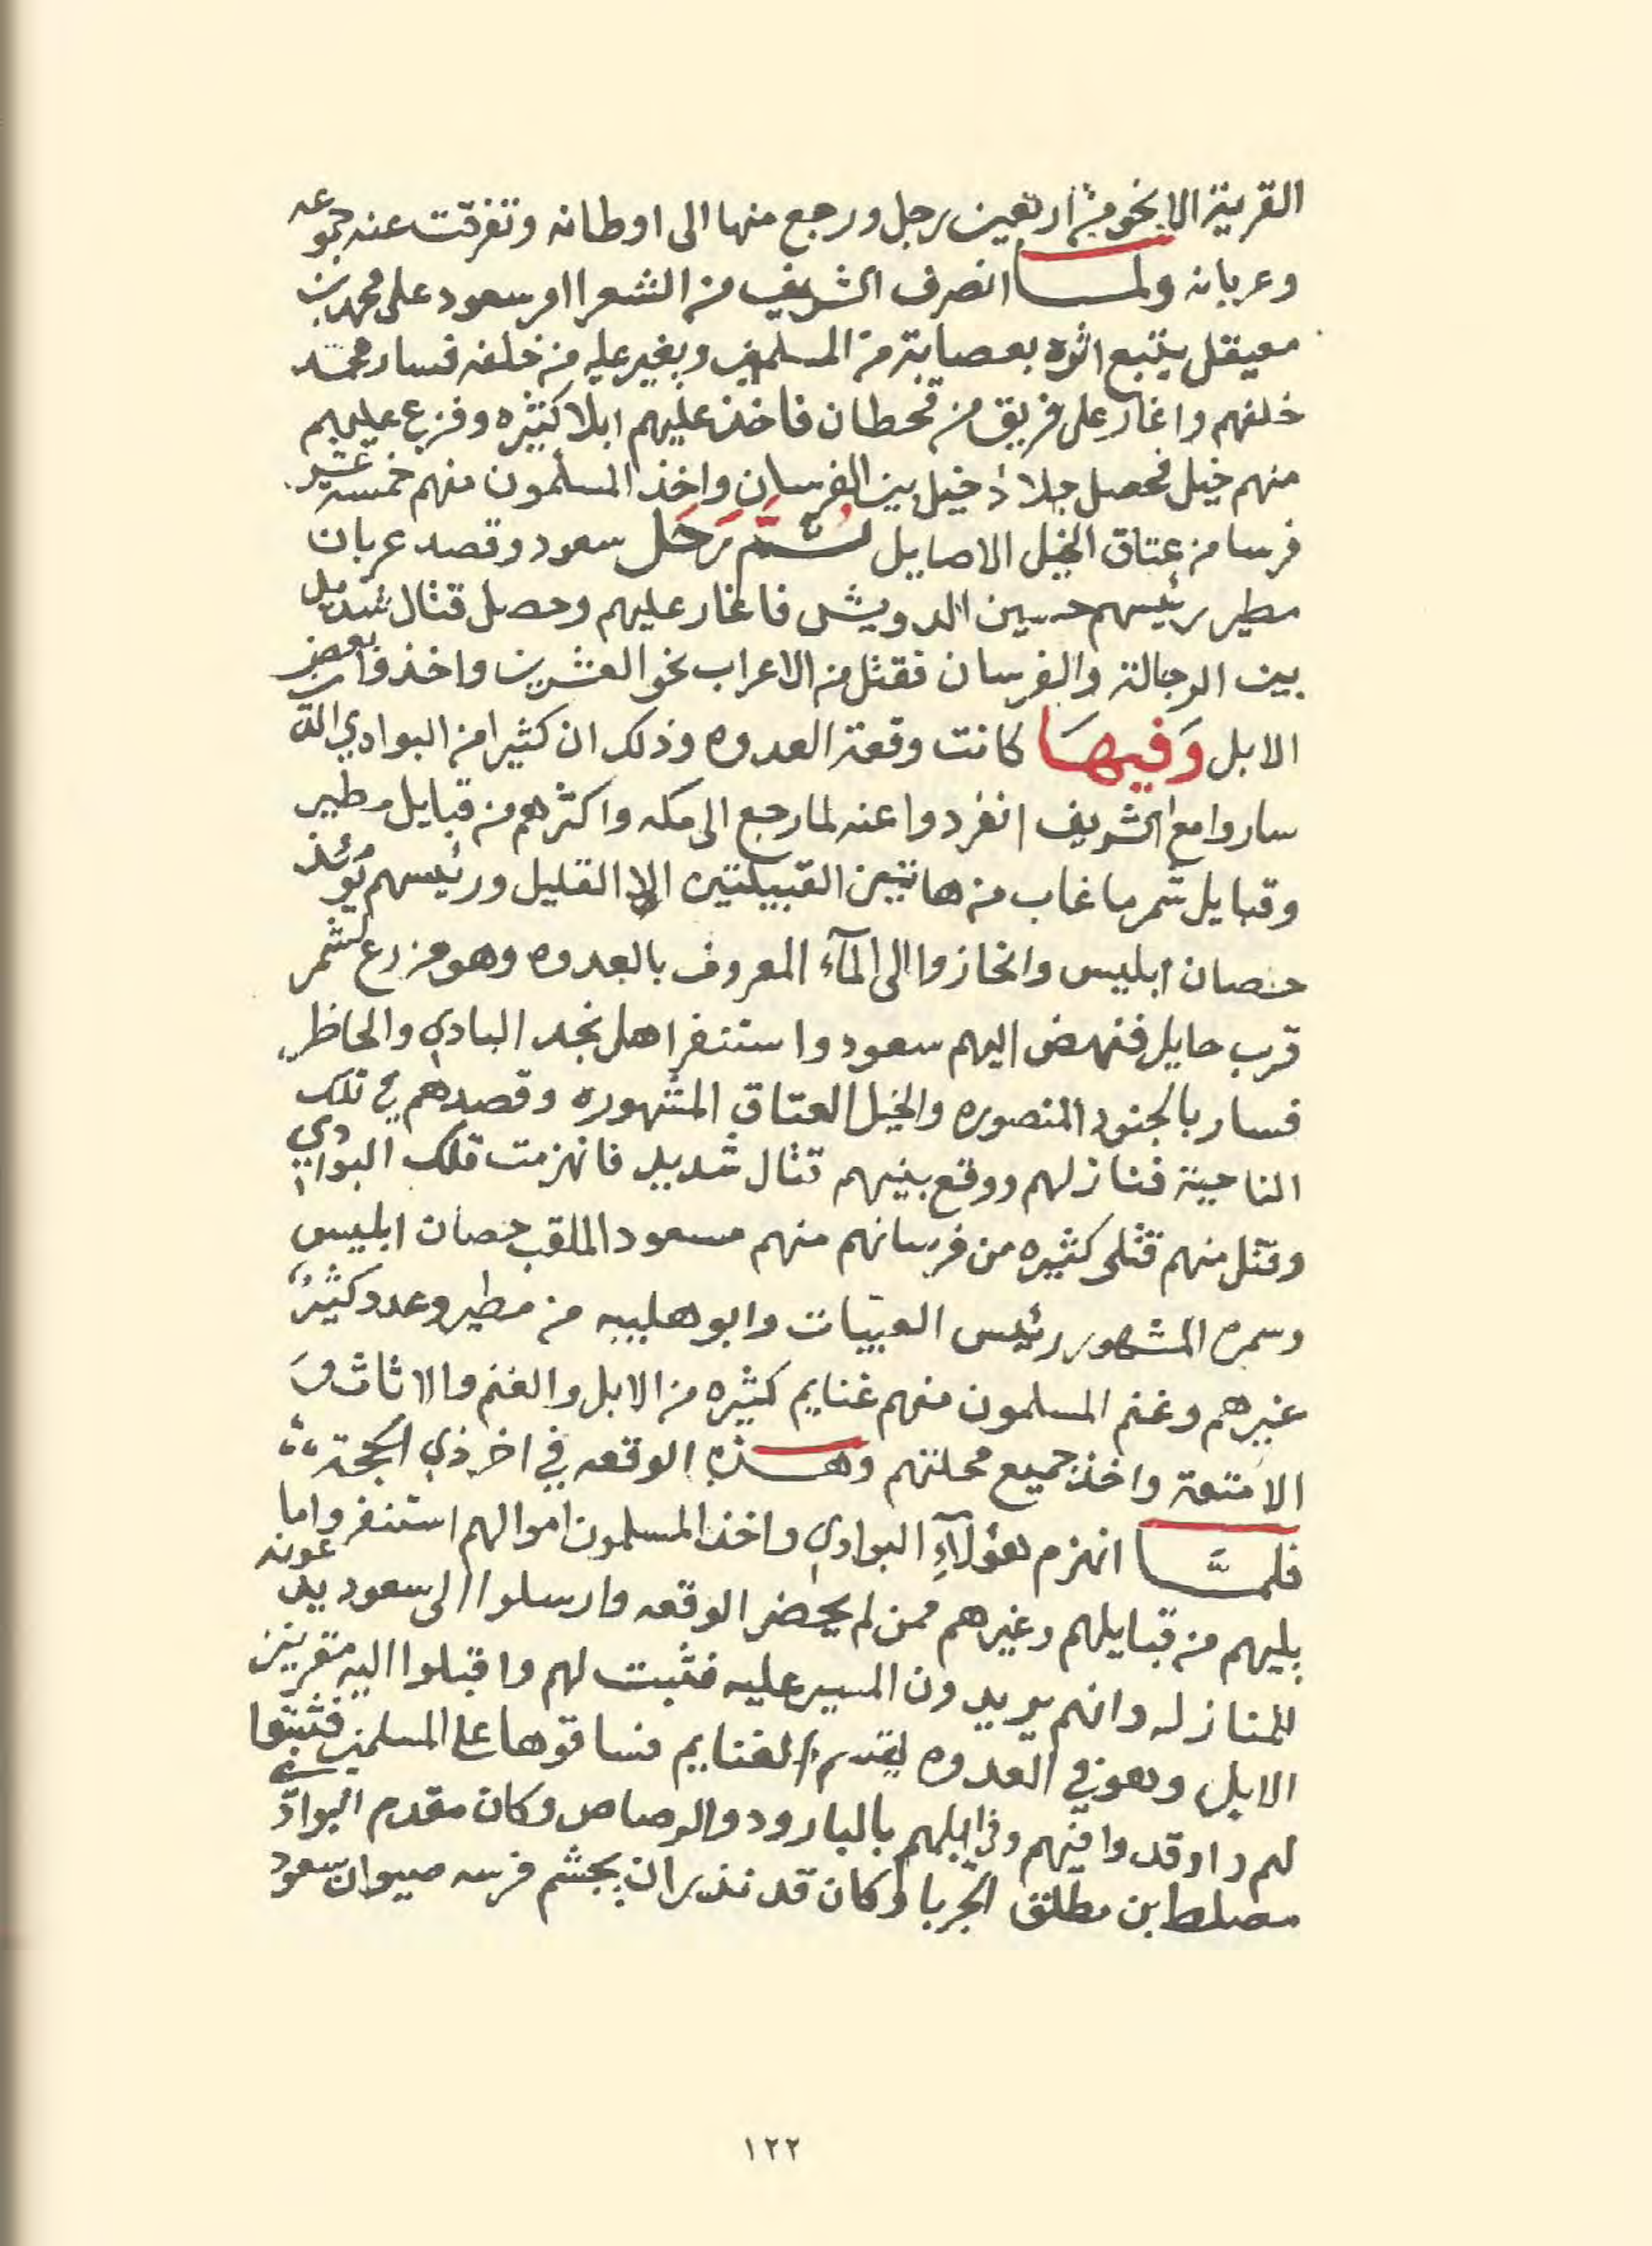 القرية الا نحو من اربعين رجل ورجع منها الى اوطانه وتفرقت عنه جموعه
وعربانه ولما انصرف الشريف من الشعرا امر سعود على محمد بن
معيقل يتبع اثره بعصابة من المسلمين ويغير عليه من خلفه فسار محمد
خلفهم واغار على فريق من قحطان فاخذ عليهم ابلا كثيره وفزع عليهم
منهم خيل فحصل جلاد خيل بين الفرسان واخذ المسلمون منهم خمسة عشر
فرسا من عتاق الخيل الاصايل ثُمَّ رَحَل سعود وقصد عربان
مطير رئيسهم حسين الدويش فاغار عليهم وحصل قتال شديد
بين الرجالة والفرسان فقتل من الاعراب نحو العشرين واخذوا بعض
الابل وَفيهَا كانت وقعة العدوه وذلك ان كثيرا من البوادي الذي
ساروا مع الشريف انفردوا عنه لما رجع الى مكه واكثرهم من قبايل مطير
وقبايل شمر ما غاب من هاتين القبيلتين الا القليل ورئيسهم يومئذ
حصان ابليس وانحازوا الى المآء المعروف بالعدوه وهو مزرع لشمر
قرب حايل فنهض اليهم سعود واستنفر اهل نجد البادي والحاظر
فسار بالجنود المنصوره والخيل العتاق المشهوره وقصدهم في تلك
الناحية فنازلهم ووقع بينهم قتال شديد فانهزمت تلك البوادي
وقتل منهم قتلى كثيره من فرسانهم منهم مسعود الملقب حصان ابليس
وسمره المشهور رئيس العبيات وابو هليبه من مطير وعدد كثير
غيرهم وغنم المسلمون منهم غنايم كثيره من الابل والغنم والاثاث وَ
الامتعة واخذ جميع محلتهم وهذه الوقعه في اخر ذي الحجة
فلمَّا انهزم هؤلآءِ البوادي واخذ المسلمون اموالهم استنفروا ما
يليهم من قبايلهم وغيرهم ممن لم يحضر الوقعه وارسلوا الى سعود يدعونه
للمنازله وانهم يريدون المسير عليه فثبت لهم واقبلوا اليه مقرنين
الابل وهو في العدوه يقسم الغنايم فساقوها على المسلمين فثبتوا
لهم واوقدوا فيهم وفي ابلهم بالبارود والرصاص وكان مقدم البوادي
مصلط بن مطلق الجربا وكان قد نذر ان يجشم فرسه صيوان سعود
١٢٢